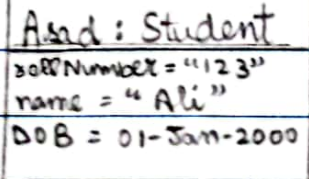 Asad : Student
rollNumber = "123"
name = "Ali"
DOB = 01-Jan-2000